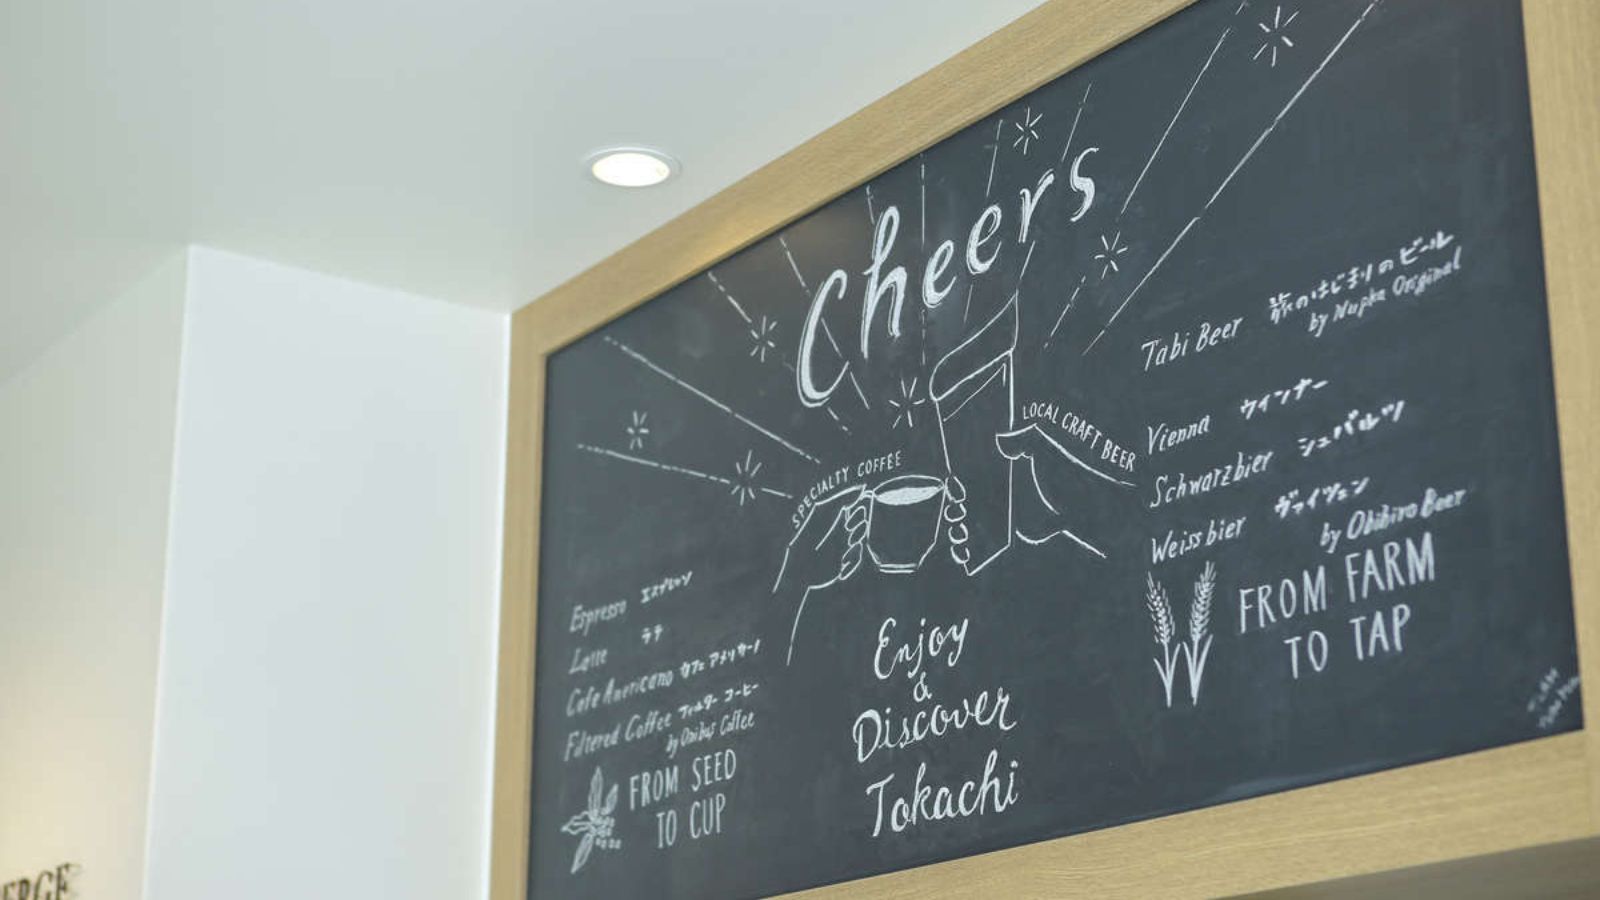 Cheers
SPECIALTY COFFEE
LOCAL CRAFT BEER
Espresso エスプレッソ
Latte ラテ
Cafe Americano カフェ アメリカーノ
Filtered Coffee フィルター コーヒー
by Onibus Coffee
FROM SEED
TO CUP
Enjoy
&
Discover
Tokachi
Tabi Beer 旅のはじまりのビール
by Nupka Original
Vienna ウインナー
Schwarzbier シュバルツ
Weissbier ヴァイツェン
by Obihiro Beer
FROM FARM
TO TAP
ERGE